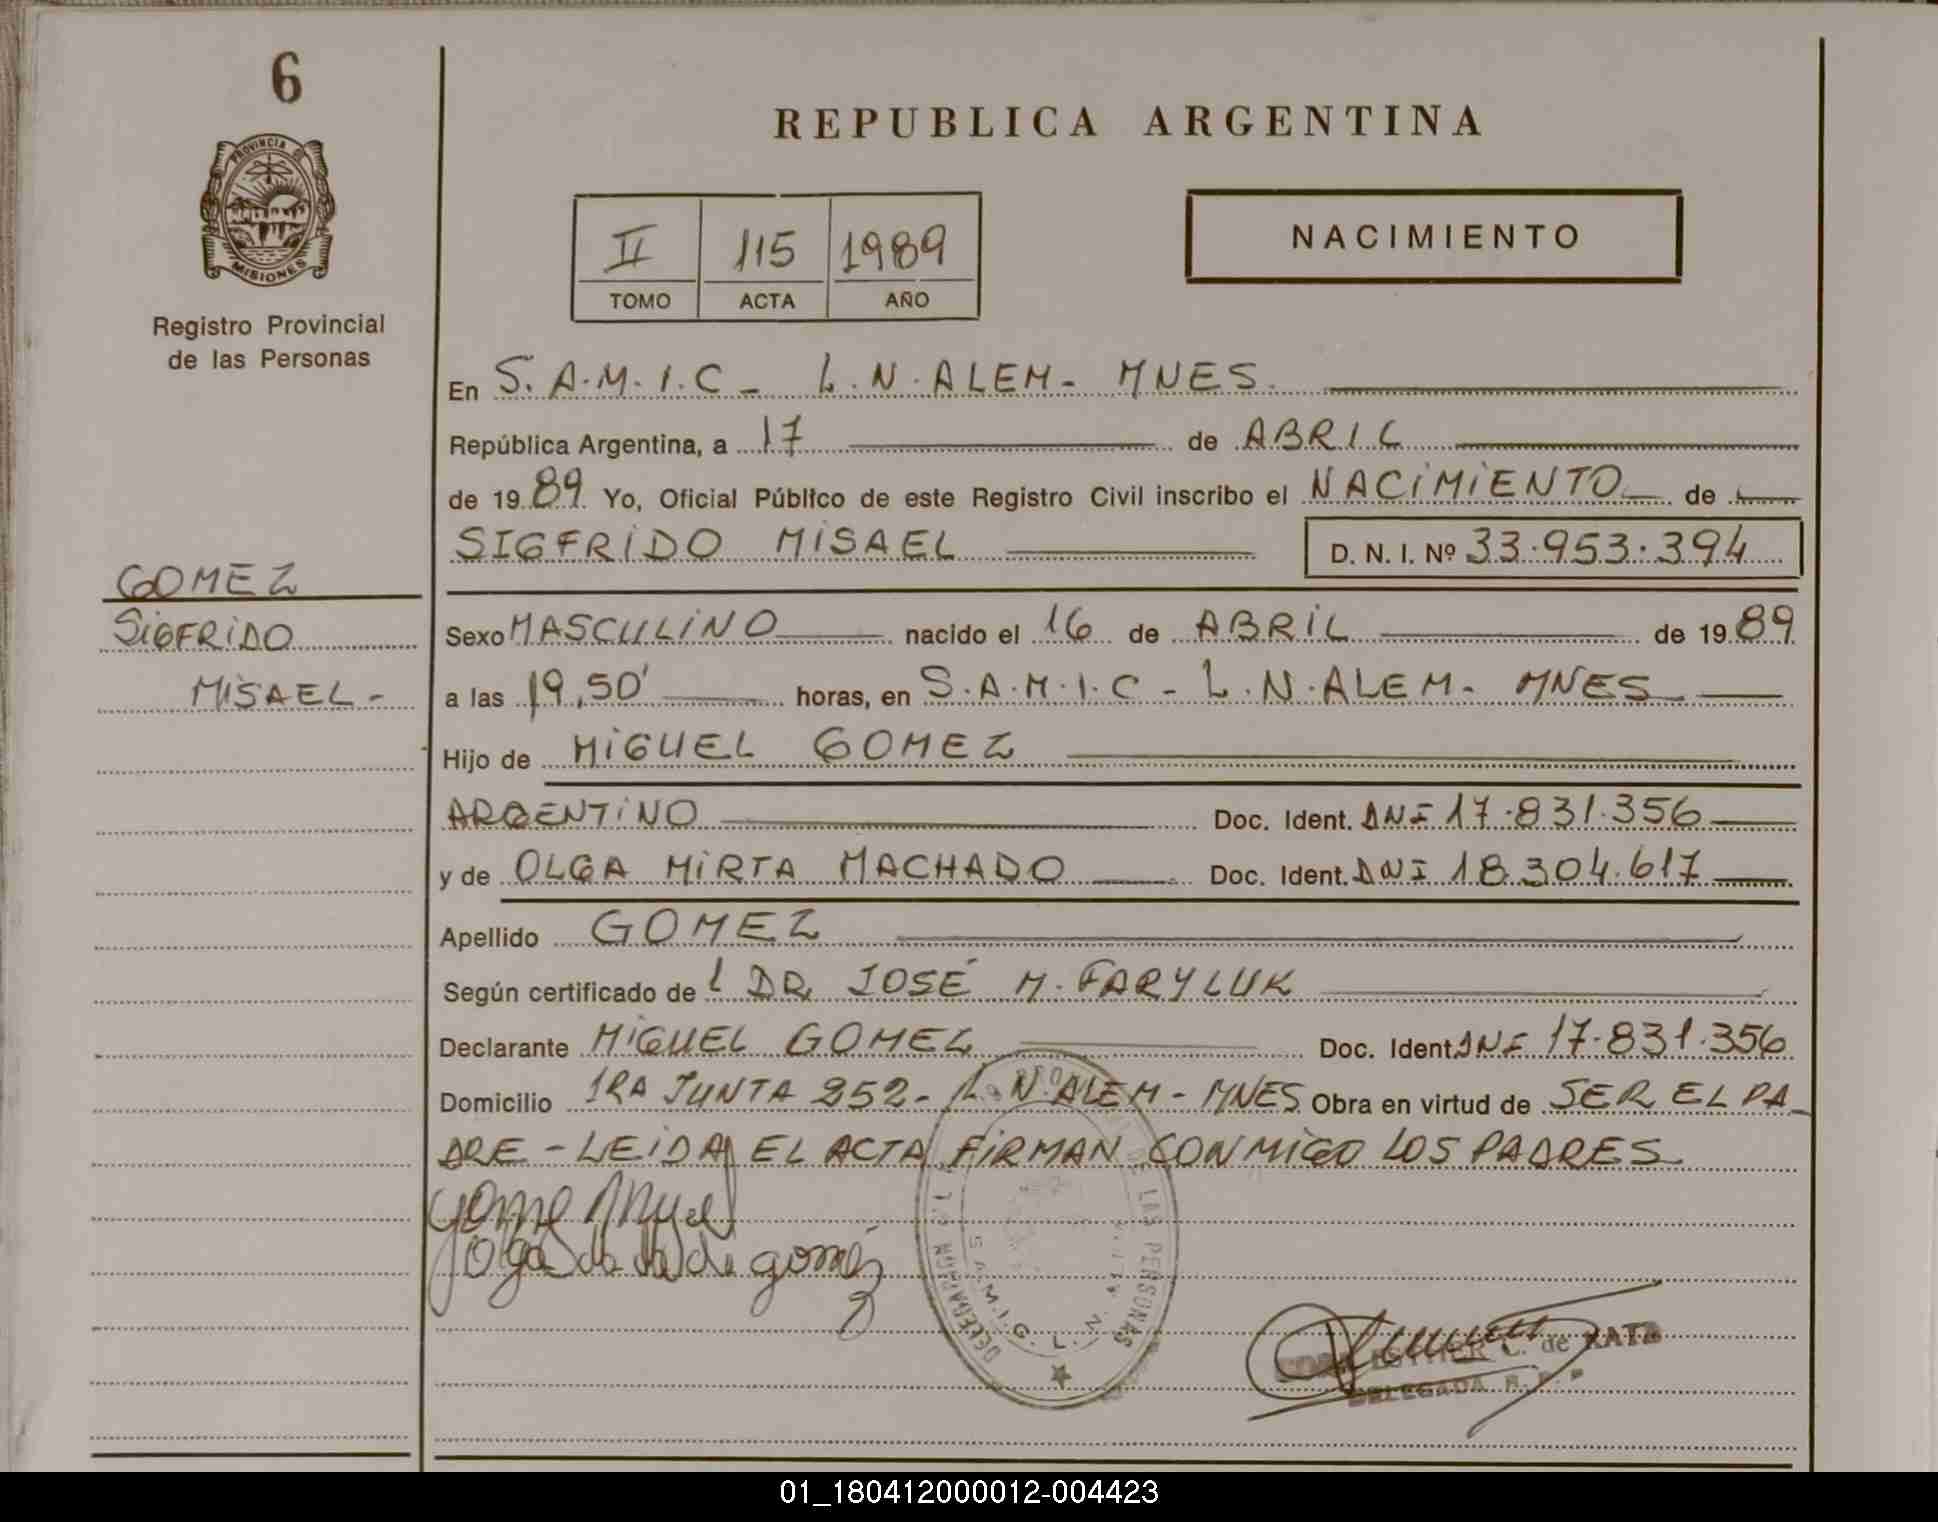 6
PROVINCIA DE
MISIONES
Registro Provincial
de las Personas
GOMEZ
SIGFRIDO
MISAEL -
REPUBLICA ARGENTINA
II 115 1989
TOMO ACTA AÑO
NACIMIENTO
En S.A.M.I.C - L.N.ALEM - MNES.
República Argentina, a 17 de ABRIL
de 1989 Yo, Oficial Público de este Registro Civil inscribo el NACIMIENTO de
SIGFRIDO MISAEL D. N. I. Nº 33.953.394
Sexo MASCULINO nacido el 16 de ABRIL de 1989
a las 19,50' horas, en S.A.M.I.C - L.N.ALEM - MNES
Hijo de MIGUEL GOMEZ
ARGENTINO Doc. Ident. DNI 17.831.356
y de OLGA MIRTA MACHADO Doc. Ident. DNI 18.304.617
Apellido GOMEZ
Según certificado de l DR JOSÉ M. FARYLUK
Declarante MIGUEL GOMEZ Doc. Ident. DNI 17.831.356
Domicilio 1RA JUNTA 252 - L.N.ALEM - MNES Obra en virtud de SER EL PA-
DRE - LEIDA EL ACTA FIRMAN CONMIGO LOS PADRES
Gome Miguel
Olga de gomez
DE LAS PERSONAS
ESTHER C. de KATZ
DELEGADA R. P. P
01_180412000012-004423